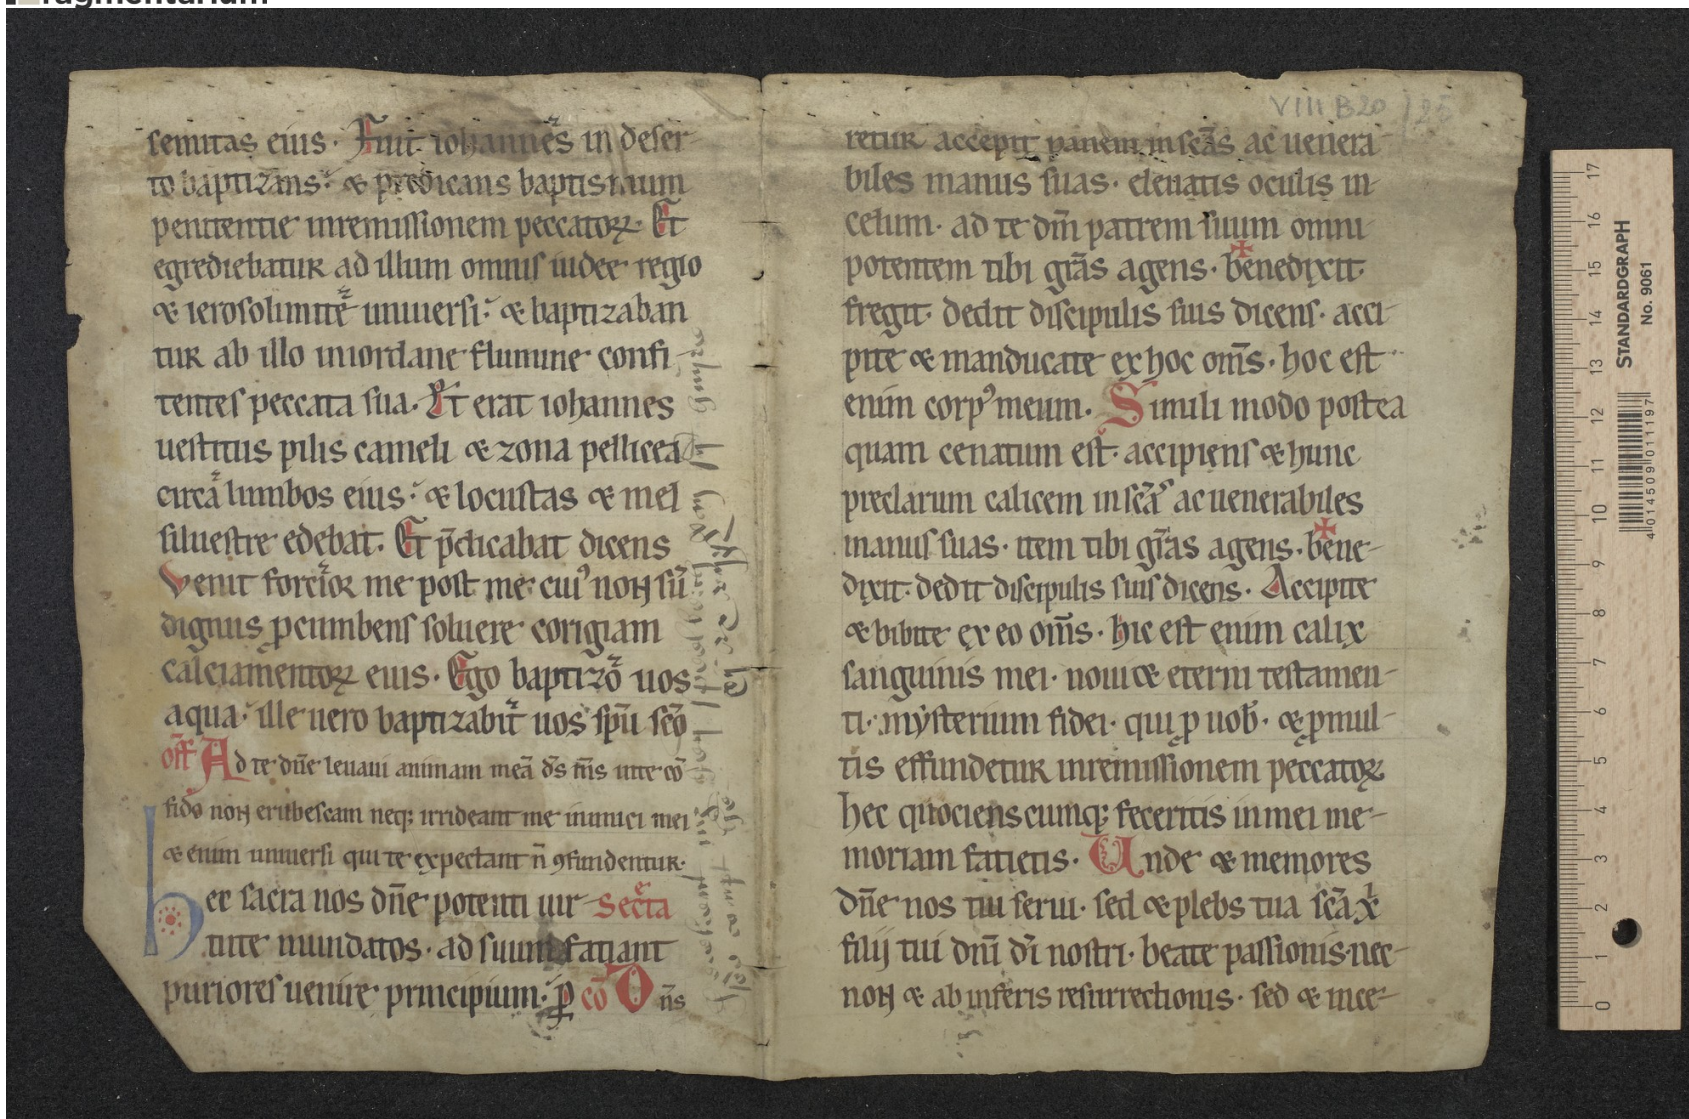 semitas eius. Fuit iohannes in deser-
to baptizans. & predicans baptismum
penitentie inremissionem peccatoꝝ. Et
egrediebatur ad illum omnis iudee regio
& ierosolimite uniuersi. & baptizaban
tur ab illo iniordane flumine confi-
tentes peccata sua. Et erat iohannes
uestitus pilis cameli & zona pellicea
circa lumbos eius. & locustas & mel
siluestre edebat. Et p̄dicabat dicens
Venit forcior me post me. cuiꝰ non sū
dignus ꝓcumbens soluere corigiam
calciamentoꝝ eius. Ego baptizo uos
aqua. ille uero baptizabit uos sp̄u sc̄o
off̄ Ad te dn̄e leuaui animam meā ds̄ ms̄ inte cō-
fido non erubescam neqꝫ irrideant me inimici mei
& enim uniuersi qui te expectant n̄ ꝯfundentur.
hec sacra nos dn̄e potenti uir- Secreta
tute mundatos. ad suum fatiant
puriores uenire principium. ꝑ cō Dn̄s
retur accepit panem in sc̄as ac uenera-
biles manus suas. eleuatis oculis in-
celum. ad te dm̄ patrem suum omni-
potentem tibi gr̄as agens. be✠nedixit
fregit. dedit discipulis suis dicens. acci-
pite & manducate ex hoc om̄s. hoc est
enim corpꝰ meum. Simili modo postea
quam cenatum est. accipiens & hunc
preclarum calicem in sc̄as ac uenerabiles
manus suas. item tibi gr̄as agens. be✠ne-
dixit. dedit discipulis suis dicens. Accipite
& bibite ex eo om̄s. hic est enim calix
sanguinis mei. noui & eterni testamen-
ti. mysterium fidei. qui ꝓ uob̄. & ꝓ mul-
tis effundetur inremissionem peccatoꝝ
hec quocienscumqꝫ feceritis in mei me-
moriam fatietis. Unde & memores
dn̄e nos tui serui. sed & plebs tua sc̄a x̄
filij tui dn̄i dī nostri. beate passionis. nec-
non & ab inferis resurrectionis. sed & ince-
VIII B20
STANDARDGRAPH
No. 9061
4 014509 011197
0 1 2 3 4 5 6 7 8 9 10 11 12 13 14 15 16 17